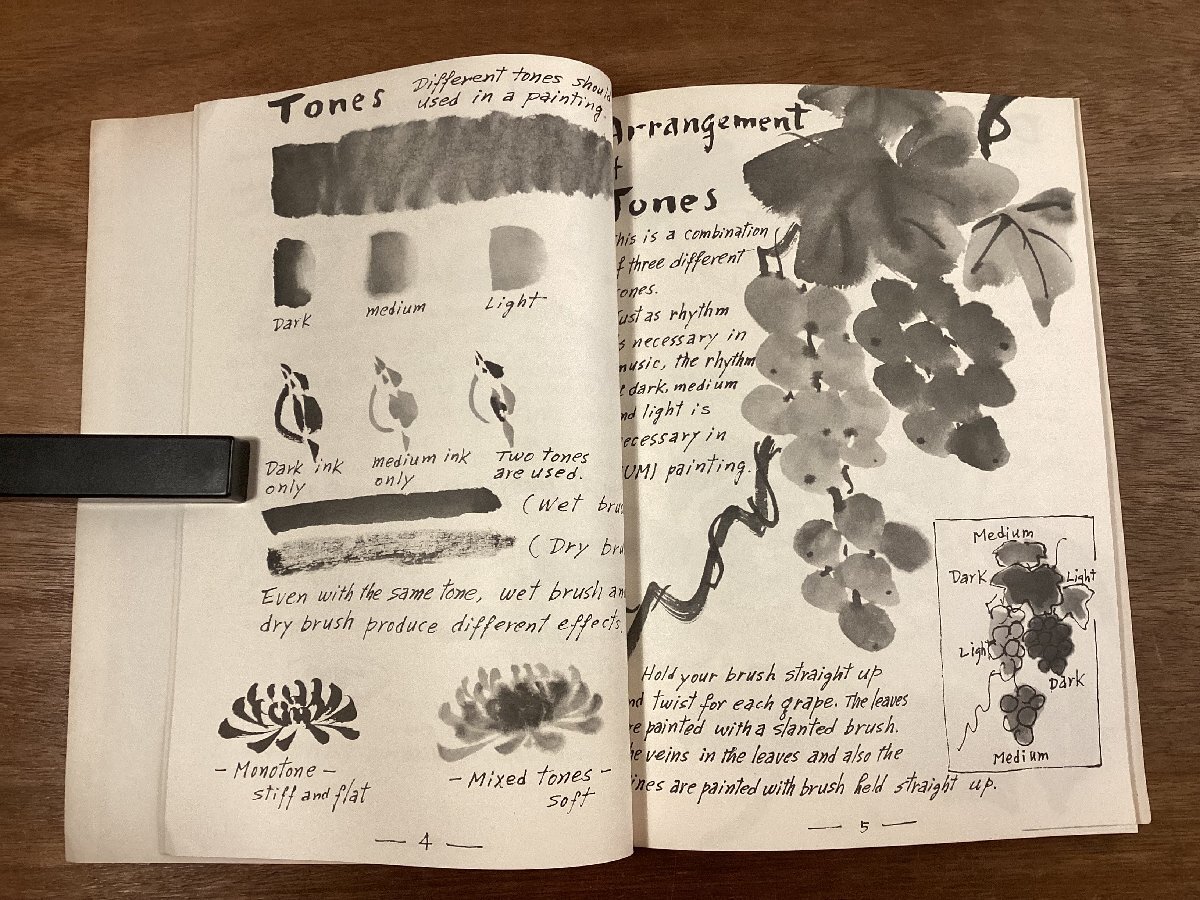 Tones
Different tones shou
used in a painting.
Dark
medium
Light
Dark ink
only
medium ink
only
Two tones
are used.
(Wet bru
(Dry bru
Even with the same tone, wet brush an
dry brush produce different effects.
- Monotone -
stiff and flat
- Mixed tones -
soft
- 4 -
Arrangement
+
Tones
This is a combination
f three different
ones.
ust as rhythm
s necessary in
music, the rhythm
dark, medium
nd light is
ecessary in
UMI painting.
Medium
Dark
Light
Light
Dark
Medium
Hold your brush straight up
nd twist for each grape. The leaves
re painted with a slanted brush.
he veins in the leaves and also the
ines are painted with brush held straight up.
- 5 -